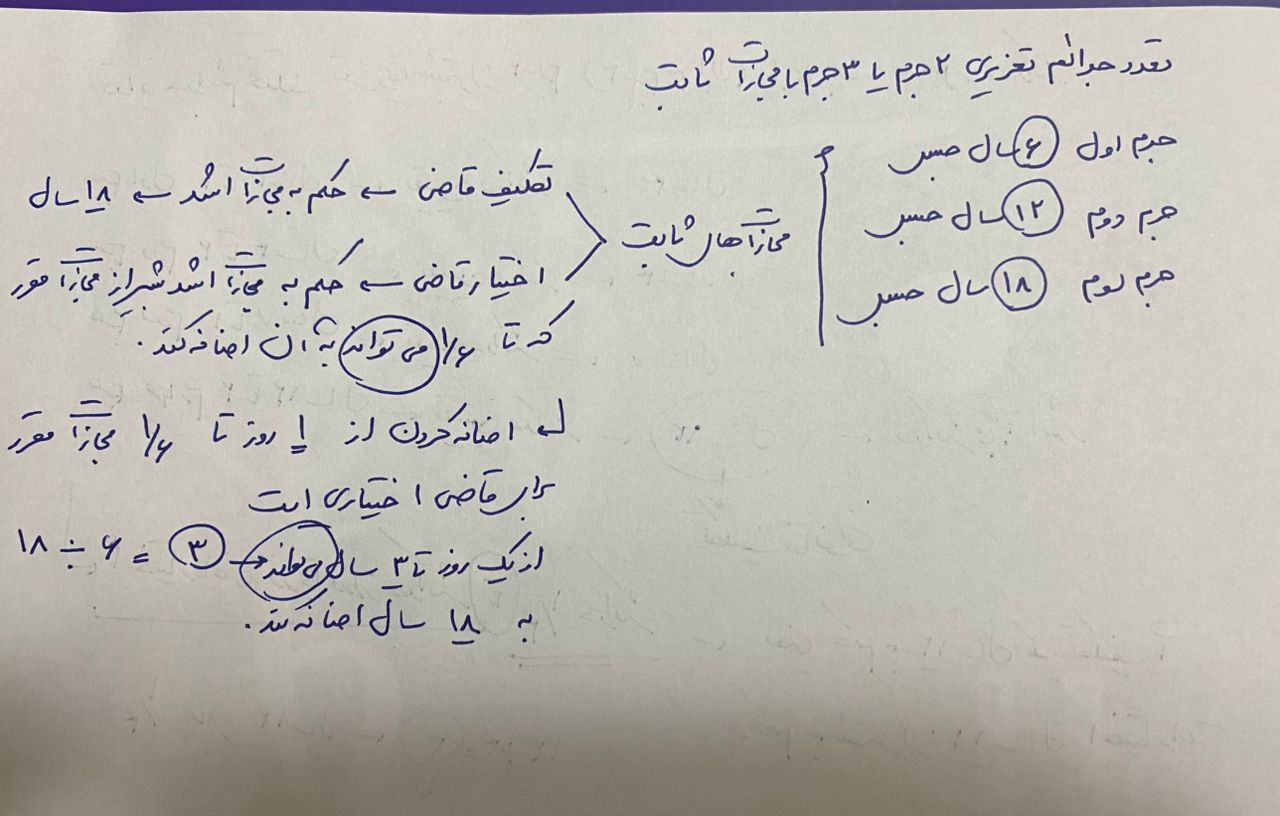 تعدد جرائم تعزیری ۲ جرم یا ۳ جرم با مجازات ثابت
جرم اول ۶ سال حبس
جرم دوم ۱۲ سال حبس
جرم سوم ۱۸ سال حبس
مجازات های ثابت
تکلیف قاضی ← حکم به مجازات اشد ← ۱۸ سال
اختیار قاضی ← حکم به مجازات اشد بیشتر از مجازات مقرر
که تا ۱/۶ می تواند به آن اضافه کند.
اضافه کردن از ۱ روز تا ۱/۶ مجازات مقرر
برای قاضی اختیاری است
از یک روز تا ۳ سال می تواند ← ۳ = ۶ ÷ ۱۸
به ۱۸ سال اضافه کند.